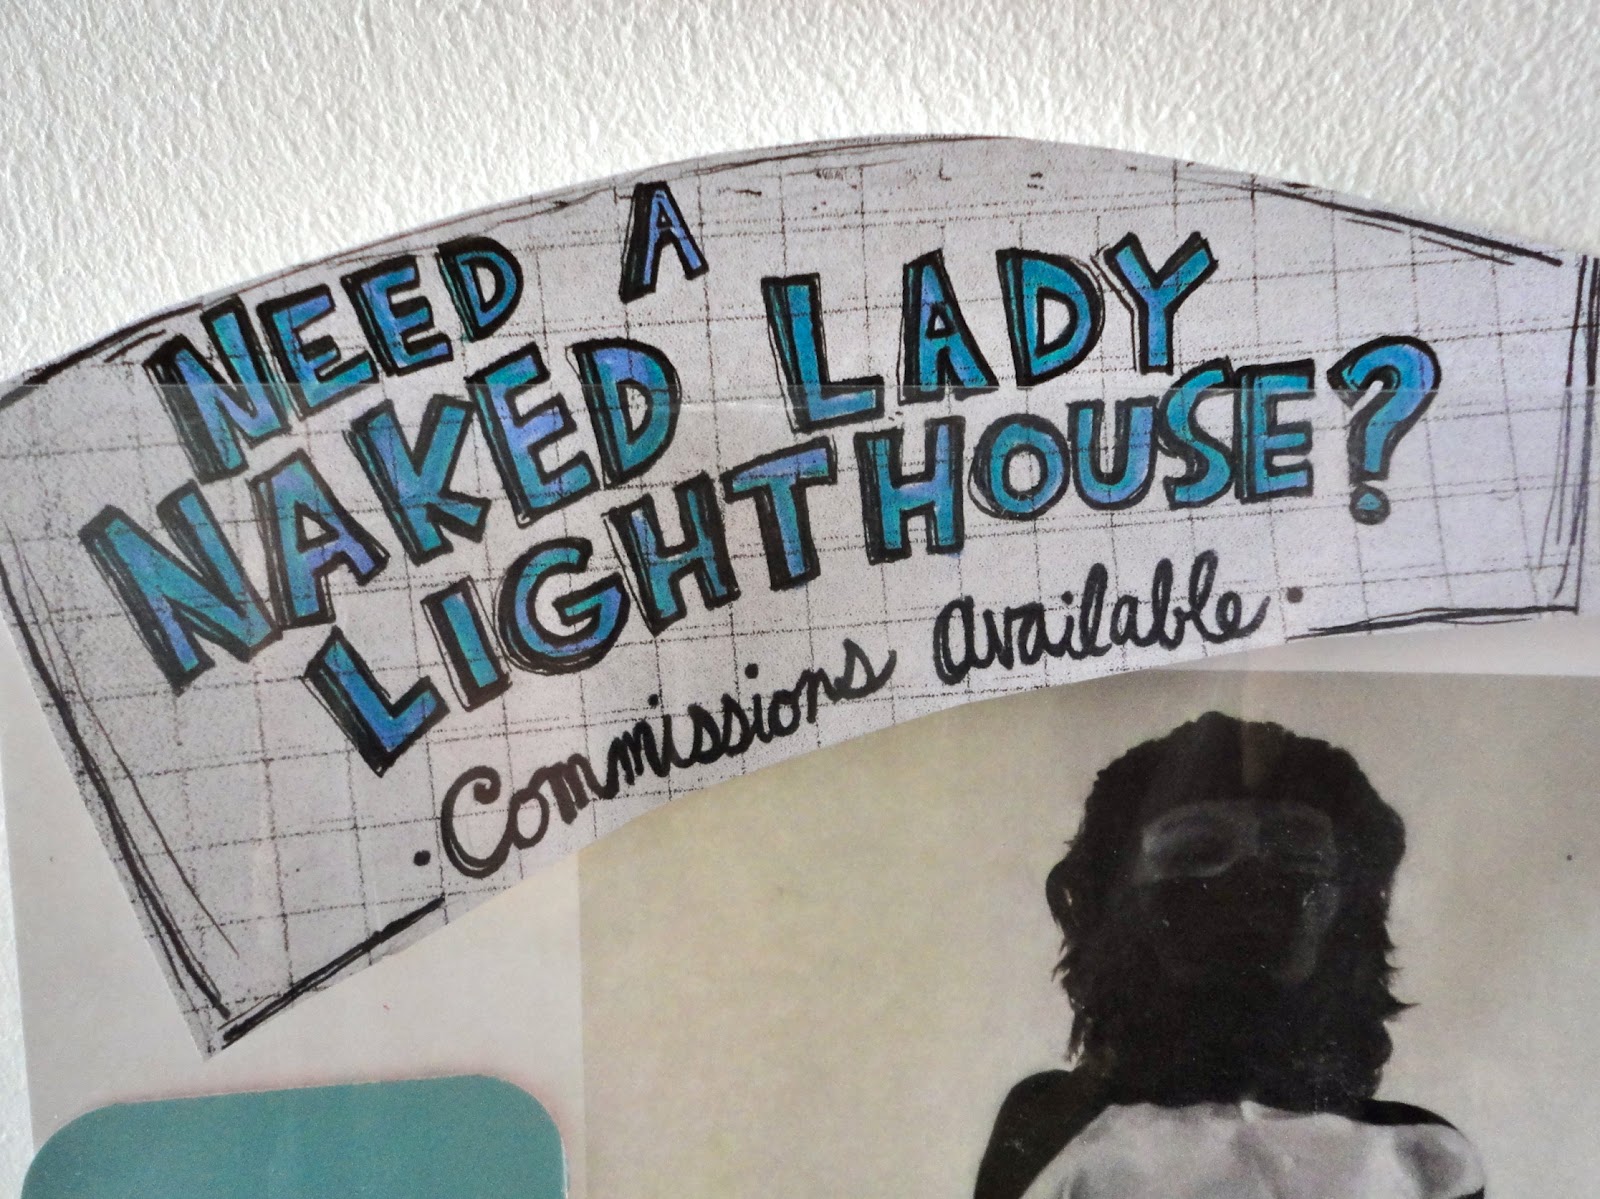 NEED A
NAKED LADY
LIGHTHOUSE?
• Commissions available •